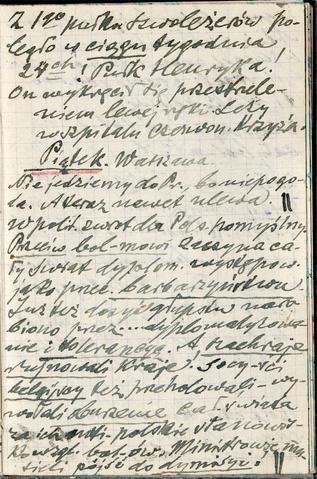 Z 1go pułku szwoleżerów po-
legło w ciągu tygodnia
24ech! Pułk Henryka!
On wykręcił się przestrzele-
niem lewej ręki. Leży
w szpitalu Czerwon. Krzyża.
Piątek. Warszawa.
Nie jedziemy do Pr., bo niepogo-
da. A teraz nawet ulewa.
W polit. zwrot dla Pols. pomyślny.
Przeciw bol-mowi zaczyna ca-
ły świat dyplom. występow.
jako przec. barbarzyństwu
Już też dosyć głupstw narо-
biono przez ... dyplomatyzowa-
nie i tolerancję. A tracą kraje
zrujnowali kraje). Socy-ści
belgijscy też przeholowali - wy-
wołali oburzenie cał. świata
za ich anti-polskie stanowis-
ko wzgl. bol-ów. Ministrowie mu-
sieli pójść do dymisji.